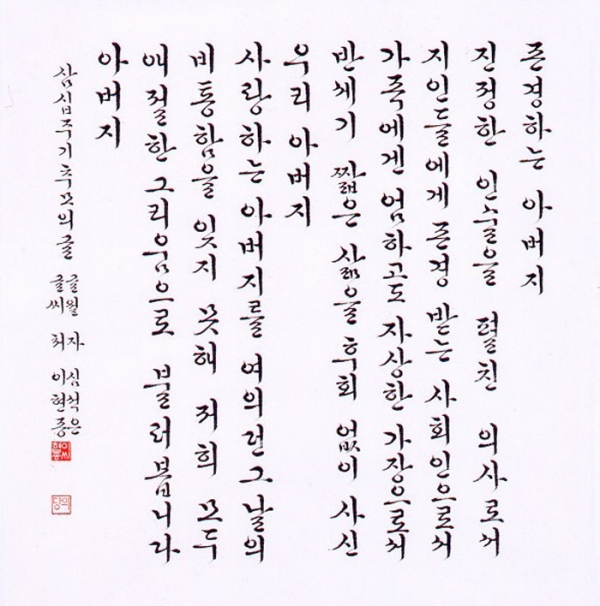 존경하는 아버지
진정한 인술을 펼친 의사로써
지인들에게 존경 받는 사회인으로써
가족에겐 엄하고도 자상한 가장으로써
반세기 짧은 삶을 후회 없이 사신
우리 아버지
사랑하는 아버지를 여의던 그날의
비통함을 잊지 못해 저희 모두
애절한 그리움으로 불러봅니다
아버지
삼십주기추모의글
글월 자 심석은
글씨 처 이현종